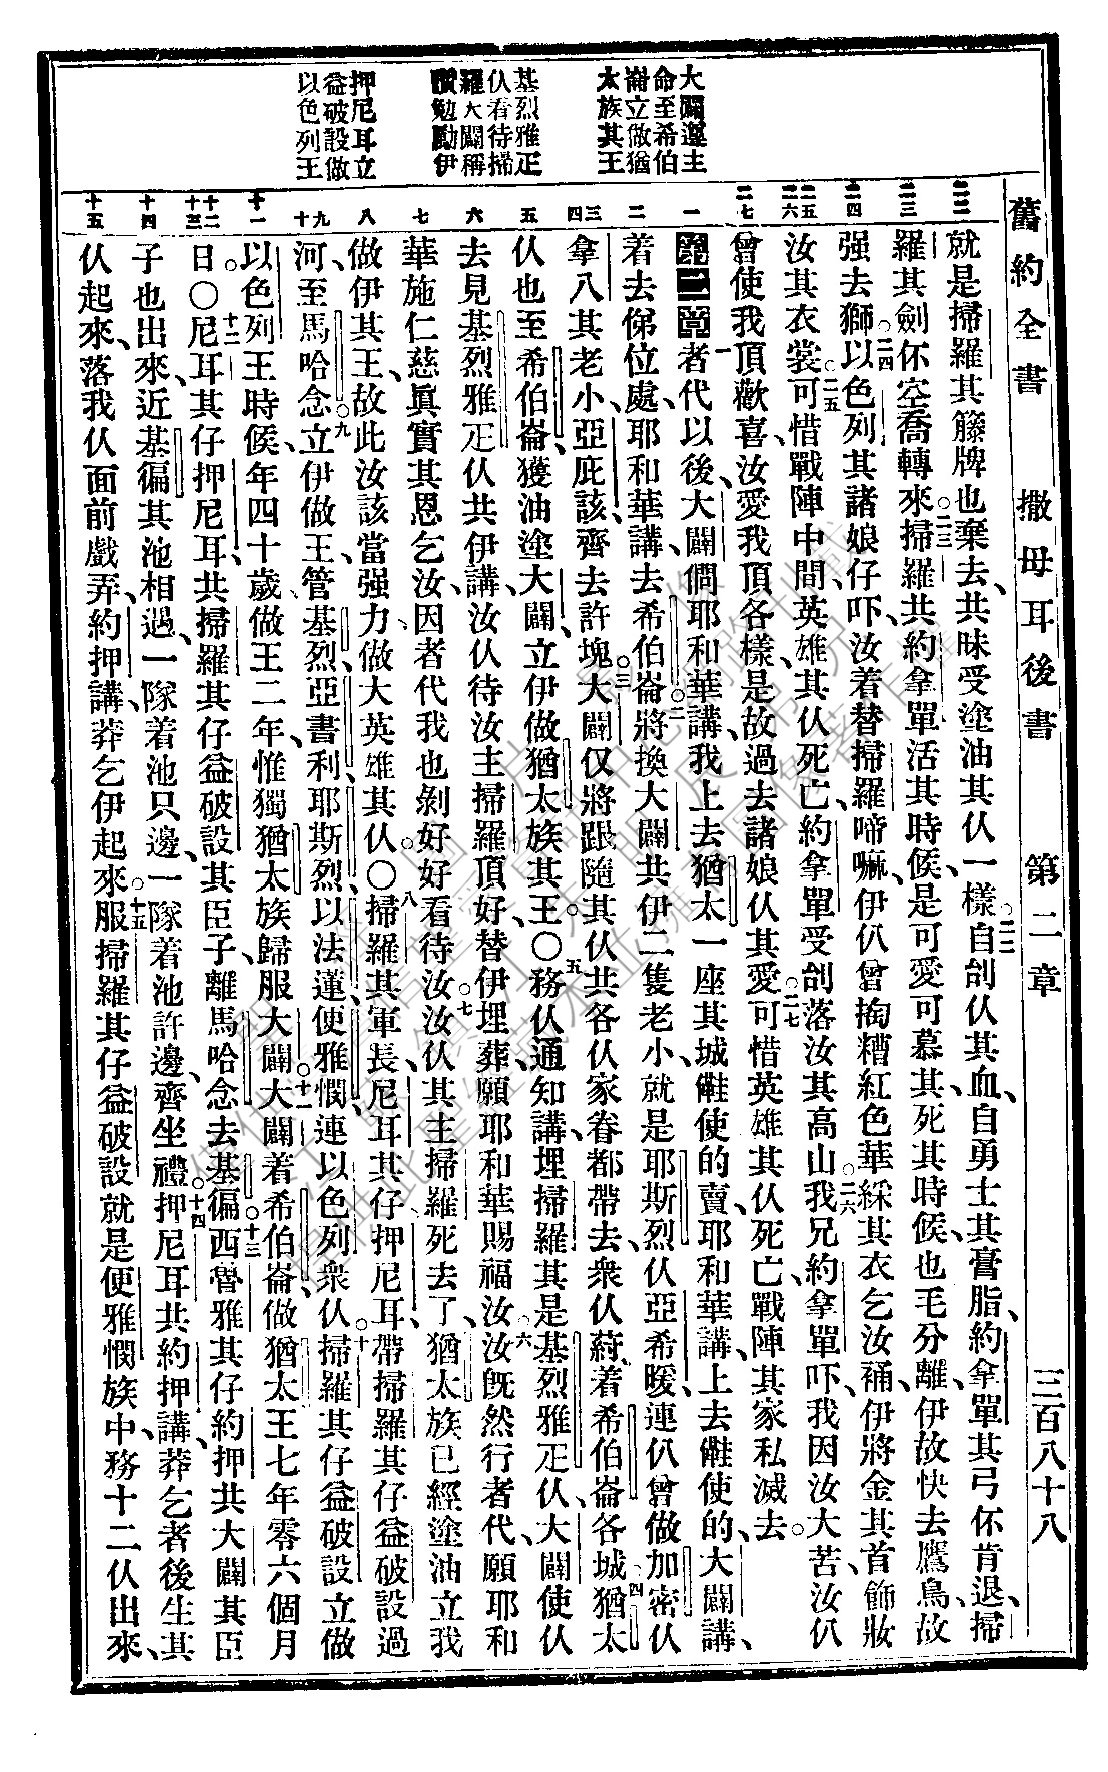 舊約全書 撒母耳後書 第二章 三百八十八
大闢遵主
命至希伯
崙立做猶
太族其王
基烈雅疋
仈看待掃
羅大闢稱
讚勉勵伊
押尼耳立
益破設做
以色列王
就是掃羅其籐牌也棄去、共昧受塗油其仈一樣○二二自刣仈其血、自勇士其膏脂、約拿單其弓伓肯退、掃
羅其劍伓空喬轉來○二三掃羅共約拿單活其時候、是可愛可慕其、死其時候、也毛分離、伊故快去鷹鳥故
强去獅○二四以色列其諸娘仔吓、汝着替掃羅啼嘛、伊仈曾掏糟紅色華綵其衣乞汝䘄、伊將金其首飾妝
汝其衣裳○二五可惜戰陣中間、英雄其仈死亡、約拿單受刣落汝其高山○二六我兄約拿單吓、我因汝大苦、汝仈
曾使我頂歡喜、汝愛我頂各樣、是故過去諸娘仈其愛○二七可惜英雄其仈死亡、戰陣其家私滅去○
第二章 一者代以後、大闢問耶和華講、我上去猶太一座其城、㑚使的賣、耶和華講、上去㑚使的、大闢講、
着去俤位處、耶和華講、去希伯崙○二將換大闢共伊二隻老小、就是耶斯烈仈亞希暖、連仈曾做加密仈
拿八其老小、亞庇該、齊去許塊○三大闢仅將跟隨其仈共各仈家眷都帶去、衆仈䓀着希伯崙各城○四猶太
仈也至希伯崙、獲油塗大闢、立伊做猶太族其王○務仈通知講、埋掃羅其是基烈雅疋仈○五大闢使仈
去見基烈雅疋仈共伊講、汝仈待汝主掃羅頂好、替伊埋葬、願耶和華賜福汝○六汝旣然行者代、願耶和
華施仁慈眞實其恩乞汝、因者代我也剝好好看待汝○七汝仈其主掃羅死去了、猶太族已經塗油立我
做伊其王、故此汝該當强力做大英雄其仈○八掃羅其軍長尼耳其仔押尼耳、帶掃羅其仔益破設過
河、至馬哈念○九立伊做王、管基烈、亞書利、耶斯烈、以法蓮、便雅憫、連以色列衆仈○十掃羅其仔益破設立做
以色列王時候、年四十歲、做王二年、惟獨猶太族歸服大闢○十一大闢着希伯崙、做猶太王七年零六個月
日○十二尼耳其仔押尼耳、共掃羅其仔益破設其臣子、離馬哈念去基徧○十三西魯雅其仔約押共大闢其臣
子也出來、近基徧其池相遇、一隊着池只邊、一隊着池許邊、齊坐禮○十四押尼耳共約押講、莽乞者後生其
仈起來、落我仈面前戲弄、約押講、莽乞伊起來○十五服掃羅其仔益破設、就是便雅憫族中、務十二仈出來、